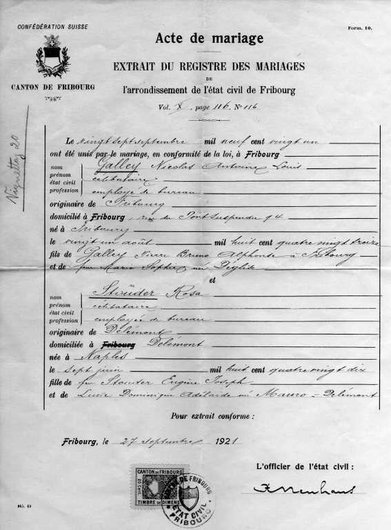 CONFÉDÉRATION SUISSE
Form. 10.
CANTON DE FRIBOURG
Acte de mariage
EXTRAIT DU REGISTRE DES MARIAGES
DE
l'arrondissement de l'état civil de Fribourg
Vol. X, page 116, N° 116
Vignettes 20
Le vingt sept septembre mil neuf cent vingt un
ont été unis par le mariage, en conformité de la loi, à Fribourg
nom Galley Nicolas Antoine Louis
prénom
état civil célibataire
profession employé de bureau
originaire de Fribourg
domicilié à Fribourg, rue du Pont Suspendu 94
né à Fribourg
le vingt un août mil huit cent quatre vingt treize
fils de Galley Pierre Bruno Alphonse à Fribourg
et de feu Marie Sophie née
et
nom Rosa
prénom
état civil célibataire
profession employée de bureau
originaire de Delémont
domiciliée à Fribourg Delémont
née à Naples
le sept juin mil huit cent quatre vingt dix
fille de feu Eugène Joseph
et de Lucie Dominique Adélaïde née Mauro - Delémont
Pour extrait conforme :
Fribourg, le 27 Septembre 1921
L'officier de l'état civil :
CANTON DE FRIBOURG
TIMBRE DE DIMENS.
ÉTAT CIVIL
FRIBOURG